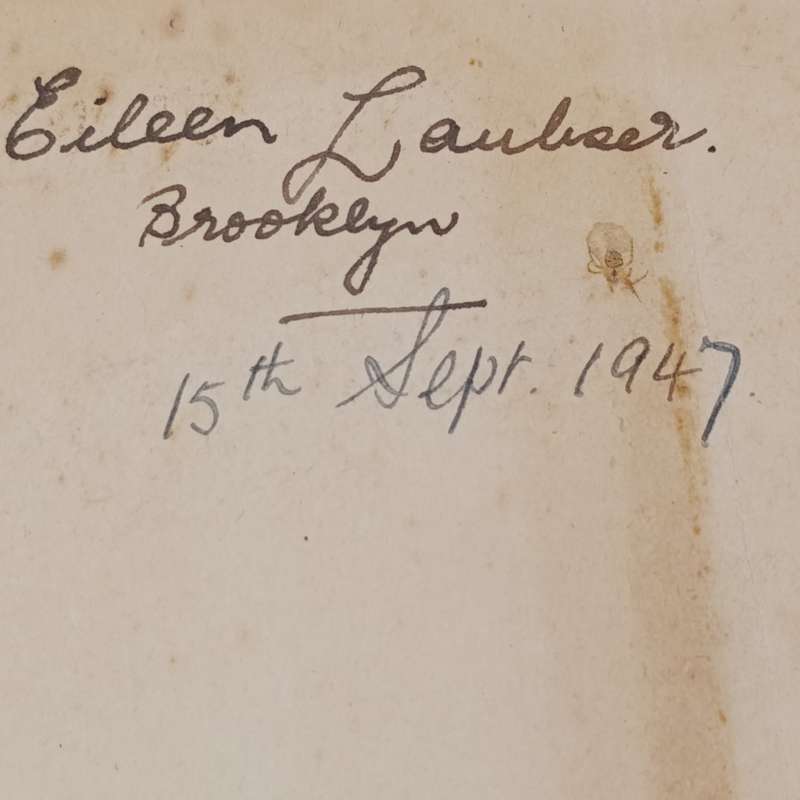 Eileen Laubser.
Brooklyn
15th Sept. 1947.